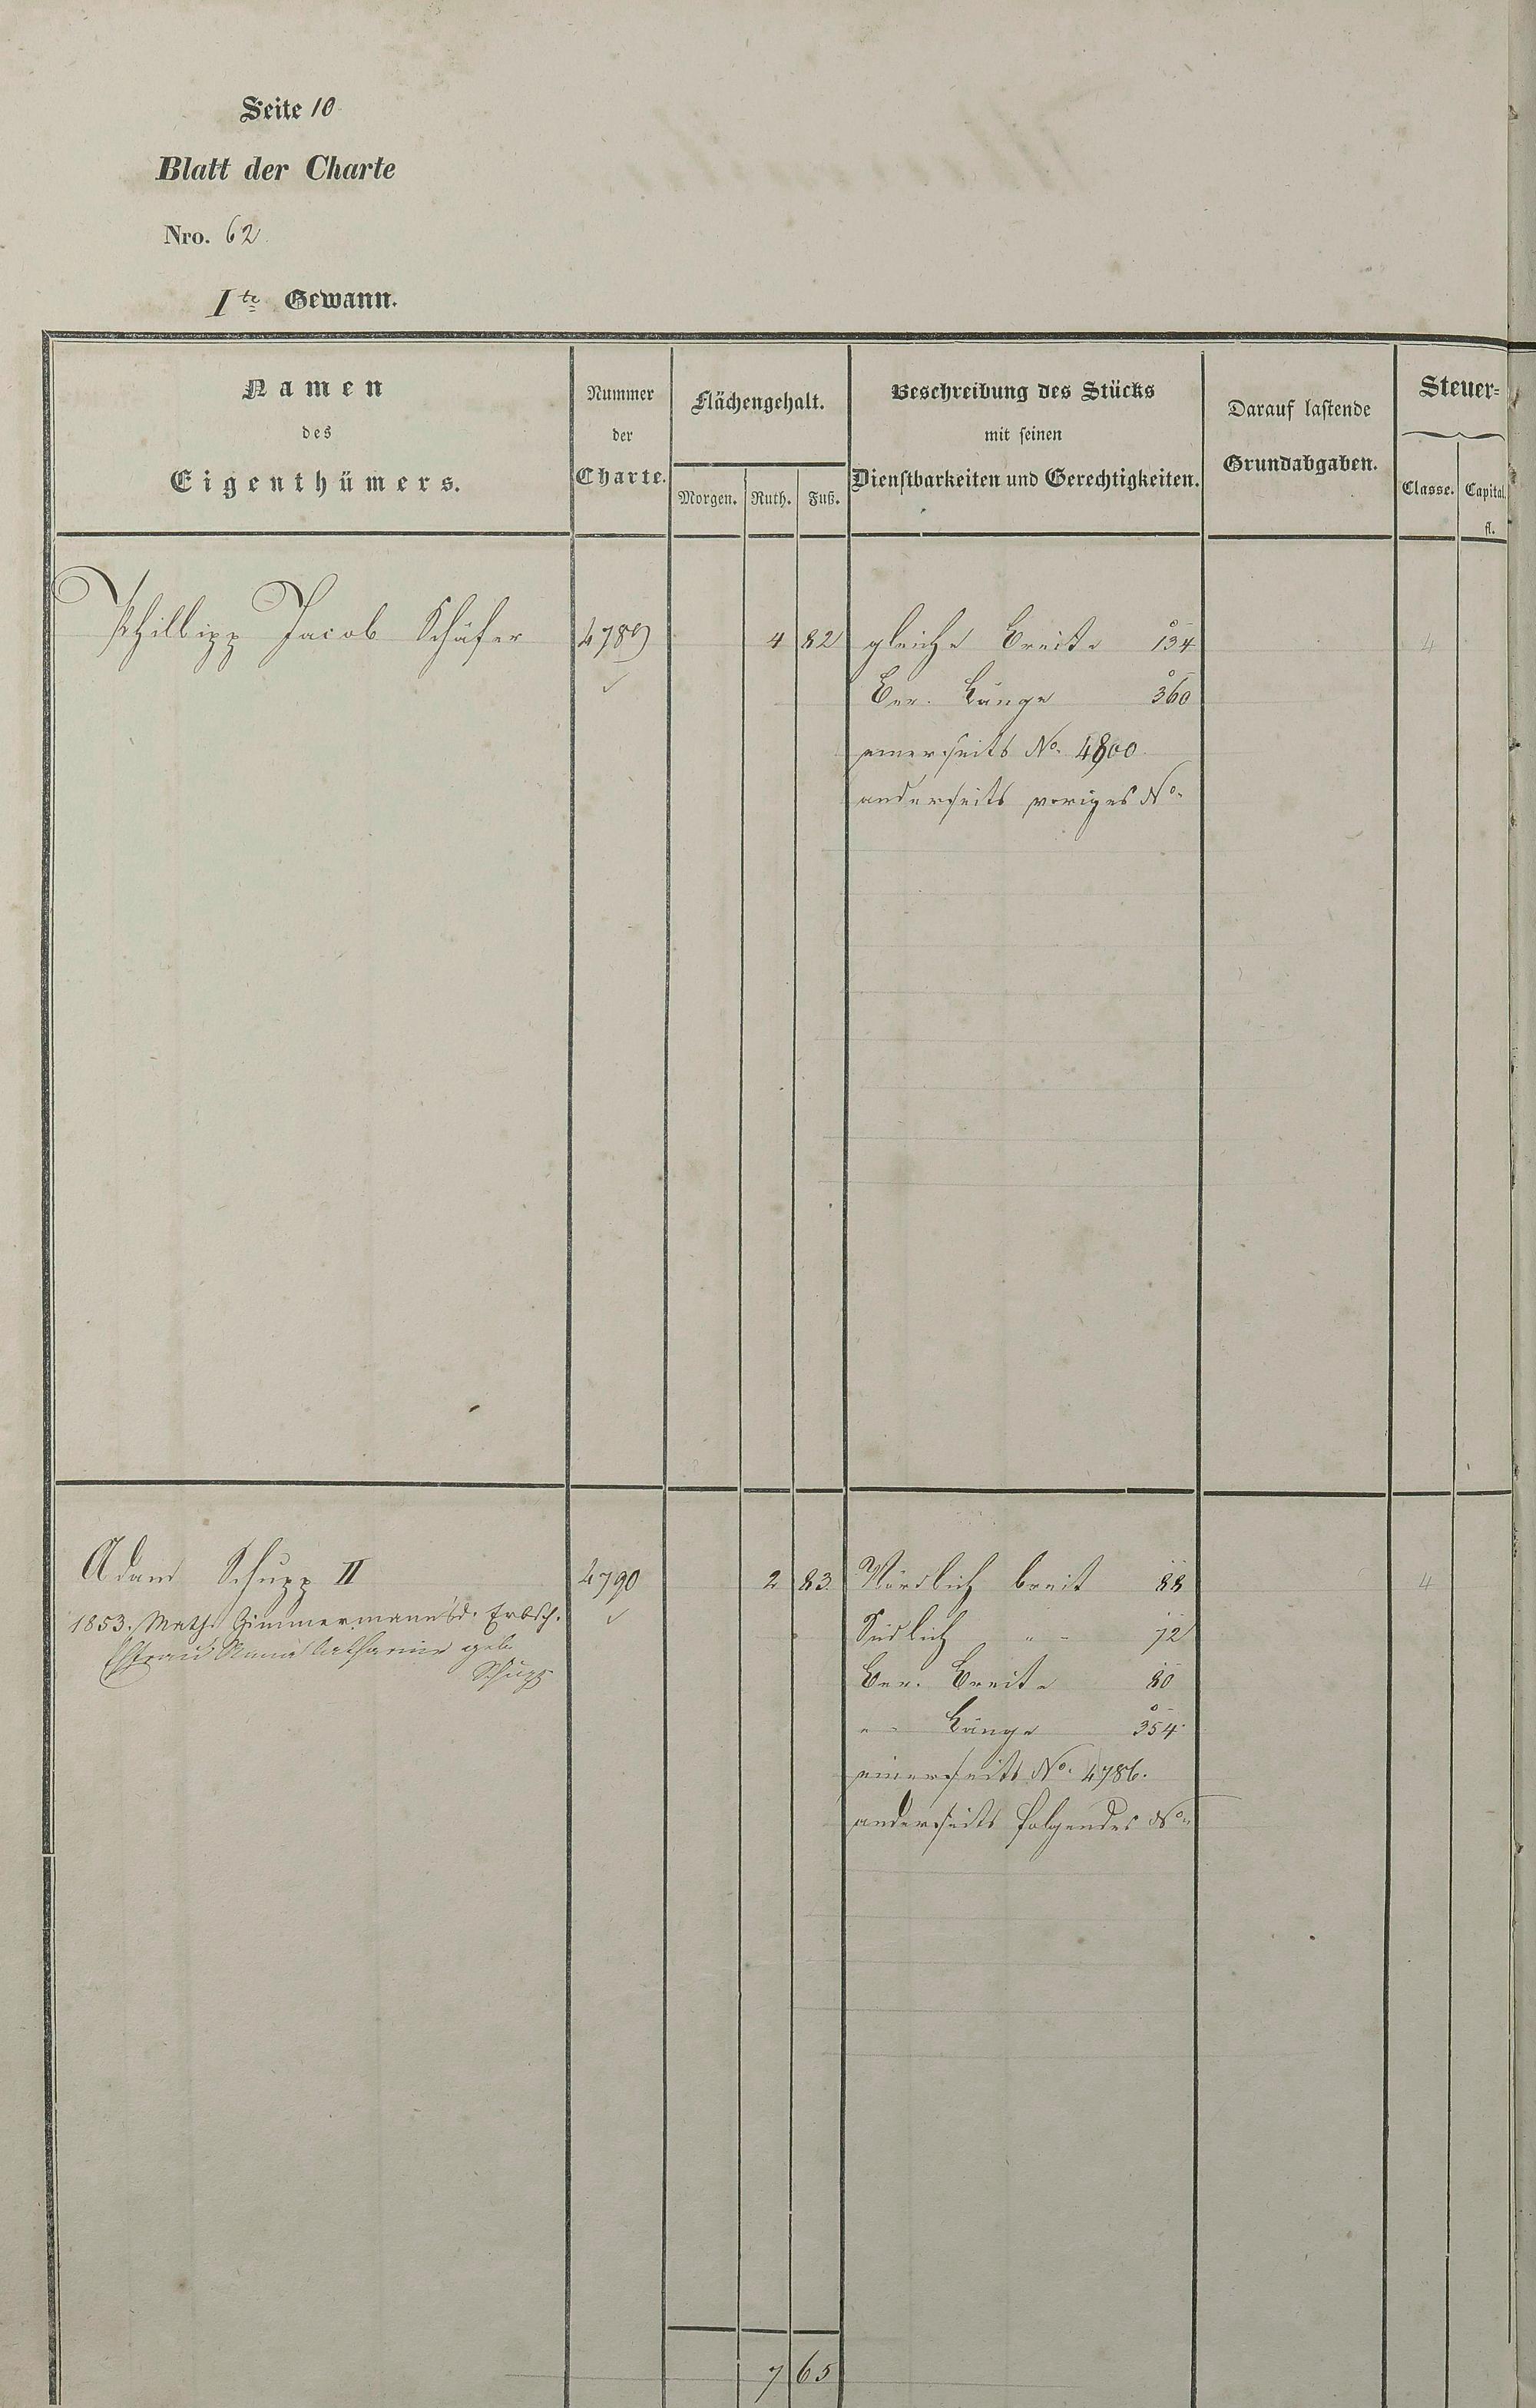 Seite 10
Blatt der Charte
Nro. 62
Ite Gewann.
Namen
des
Eigenthümers.
Nummer
der
Charte.
Flächengehalt.
Morgen. Ruth. Fuß.
Beschreibung des Stücks
mit seinen
Dienstbarkeiten und Gerechtigkeiten.
Darauf lastende
Grundabgaben.
Steuer-
Classe. Capital.
fl.
Phillipp Jacob Schäfer 4789 4 82 gleiche Breite 134 4
Ber. Länge 360
einerseits No. 4800
anderseits voriges No.
Adam Schupp II 4790 2 83 Nördlich breit 88 4
1853. Math. Zimmermann d. Erbsch. Südlich " " 72
Ehefrau Anna Catharine geb.
Schupp
Ber. Breite 80
" " Länge 354
einerseits No. 4786.
anderseits folgendes No.
7 65